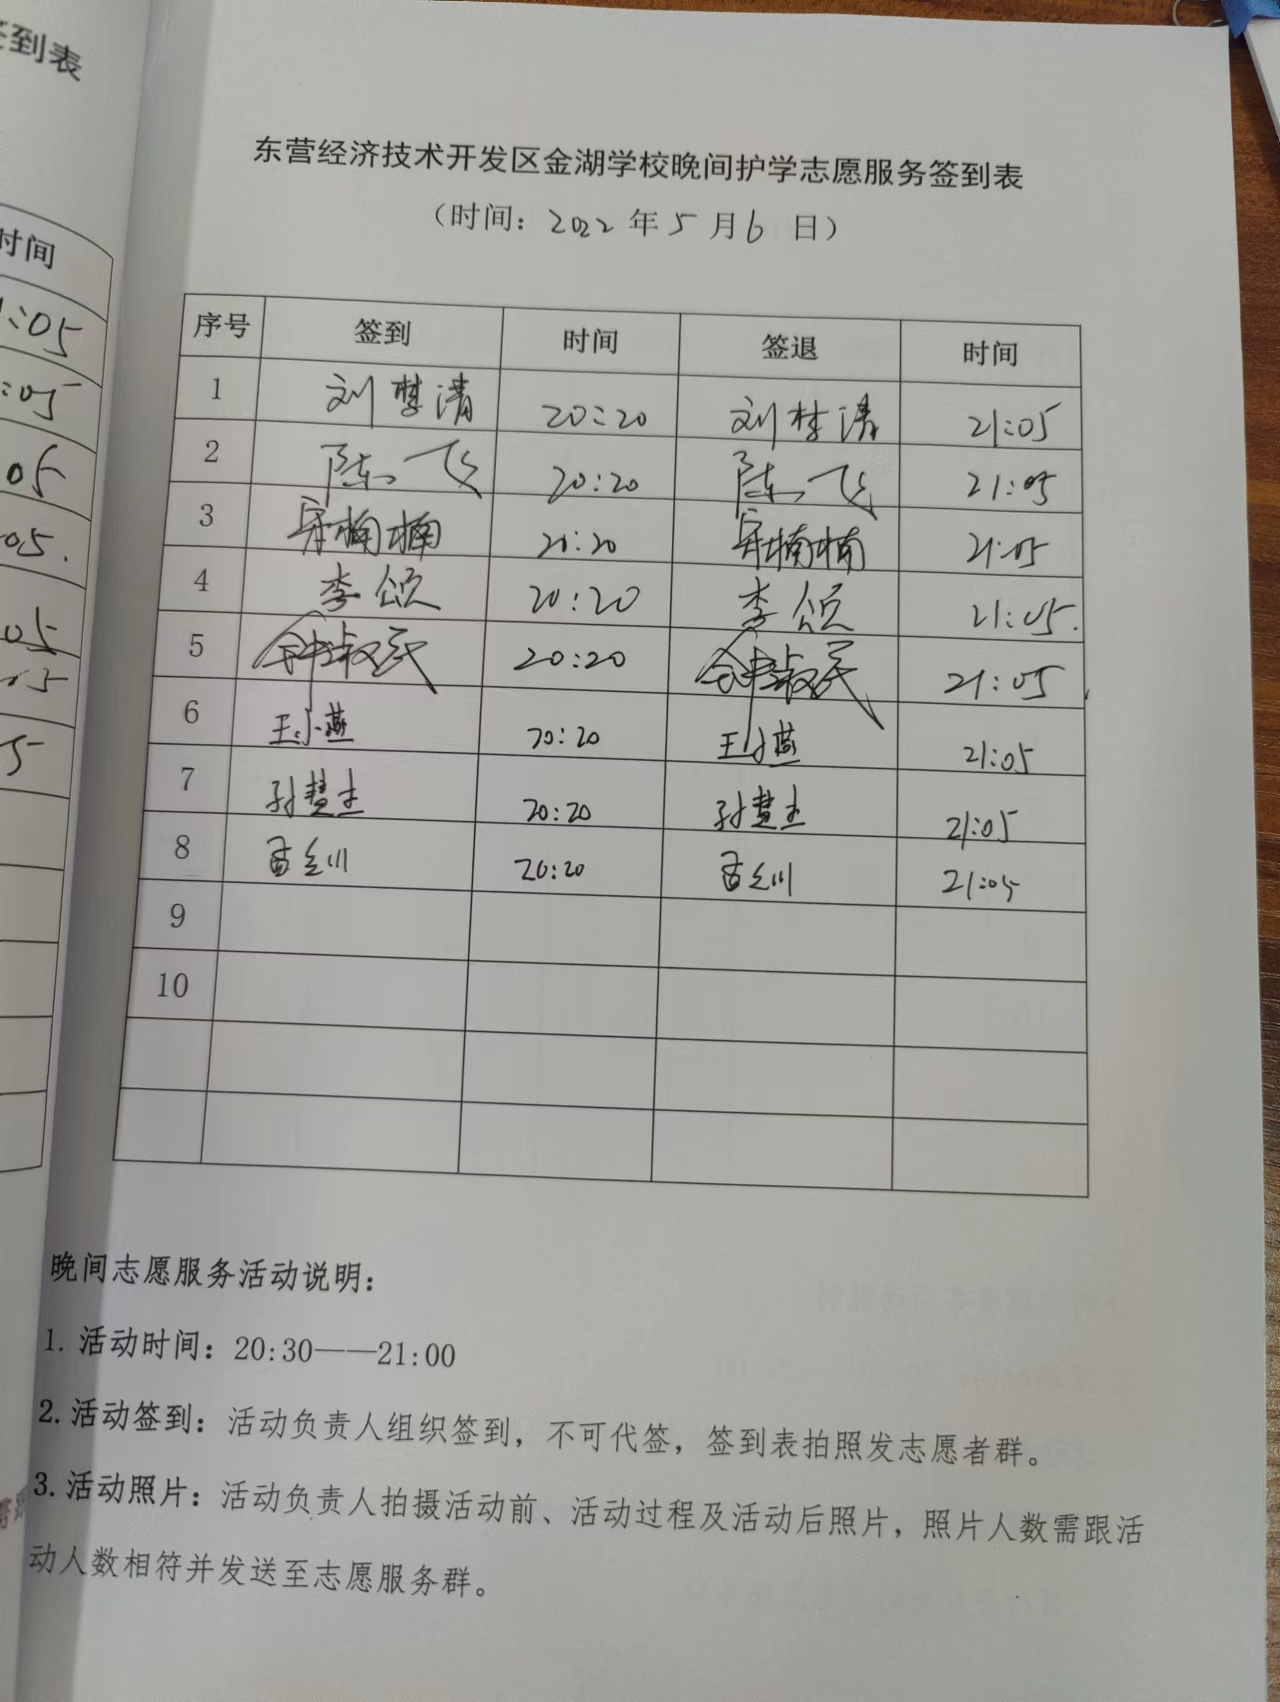 签到表
时间
1:05
:05
05
05.
05
05
5
东营经济技术开发区金湖学校晚间护学志愿服务签到表
（时间：2022年5月6日）
序号 签到 时间 签退 时间
1 刘梦清 20:20 刘梦清 21:05
2 陈飞 20:20 陈飞 21:05
3 楠楠 20:20 楠楠 21:05
4 李颂 20:20 李颂 21:05.
5 钟淑民 20:20 钟淑民 21:05
6 王小燕 20:20 王小燕 21:05
7 孙慧 20:20 孙慧 21:05
8 20:20 21:05
9
10
晚间志愿服务活动说明：
1. 活动时间：20:30——21:00
2. 活动签到：活动负责人组织签到，不可代签，签到表拍照发志愿者群。
3. 活动照片：活动负责人拍摄活动前、活动过程及活动后照片，照片人数需跟活
动人数相符并发送至志愿服务群。